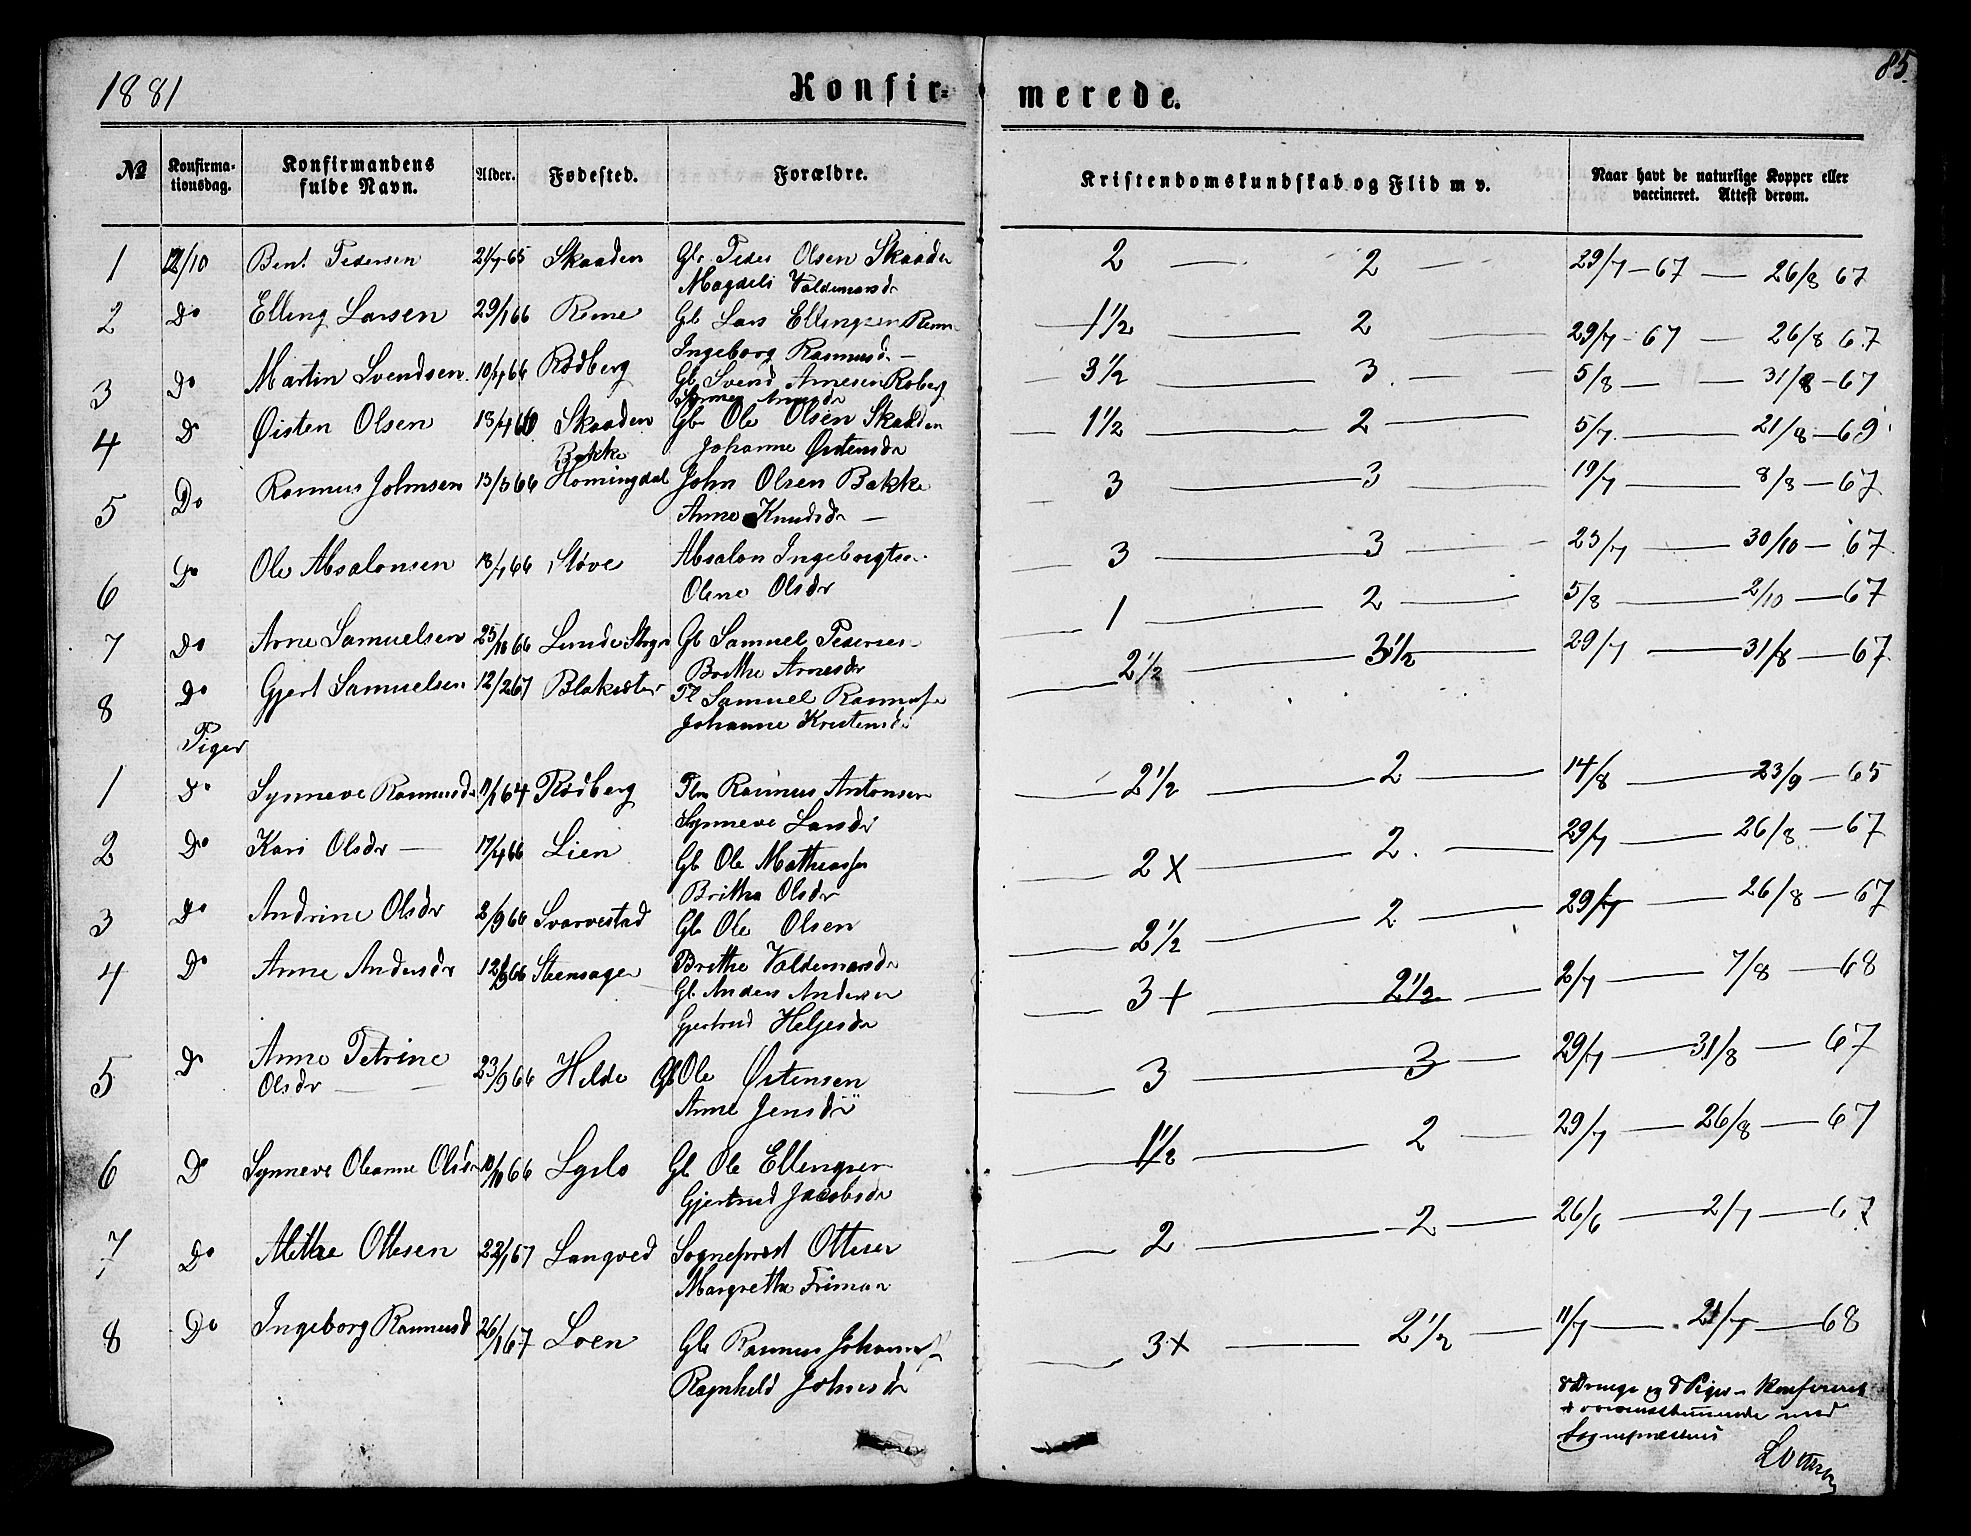 1881 Konfir- merede. 85.
№ Konfirma-tionsdag. Konfirmandens fulde Navn. Alder. Fødested. Forældre. Kristendomskundskab og Flid m v. Naar havt de naturlige Kopper eller vaccineret. Attest derom.
1 2/10 Bent Pedersen 21/7 65 Skaaden Gb Peder Olsen Skaaden 2 — 2 — 29/7 — 67 — 26/8 67
Magdeli Valdemarsdr
2 Do Elling Larsen 29/1 66 Reme Gb Lars Ellingsen Reme 1½ — 2 — 29/7 - 67 — 26/8 67
Ingeborg Rasmusdr —
3 Do Martin Svendsen 10/4 66 Rødberg Gb Svend Arnesen Roberg 3½ — 3 — 5/8 — 31/8 - 67
4 Do Øisten Olsen 13/4 66 Skaaden Gb Ole Olsen Skaaden 1½ — 2 — 5/7 — 21/8 — 69
Johanne Østensdr
5 Do Rasmus Johnsen 13/3 66 Bakke Homingdal John Olsen Bakke 3 — 3 — 19/7 — 8/8 — 67
Anne Knudsdr —
6 Do Ole Absalonsen 18/7 66 Støve Absalon Ingebrigts. 3 — 3 — 23/7 — 30/10 — 67
Oline Olsdr
7 Do Arne Samuelsen 25/10 66 Lunde Gb Samuel Pedersen 1 — 2 — 5/8 — 2/10 — 67
Brithe Arnesdr
8 Do Gjert Samuelsen 12/2 67 Blaksæter Pl Samuel Rasmuss 2½ — 3½ — 29/7 — 31/8 — 67
Johanne Kristensdr
Piger
1 Do Synneve Rasmusdr 11/1 64 Rødberg Plm Rasmus Antonsen 2½ — 2 — 14/8 — 23/9 — 65
Synneve Larsdr
2 Do Kari Olsdr — 17/4 66 Lien Gb Ole Mathiass 2 x — 2. — 29/7 — 26/8 — 67
Brithe Olsdr
3 Do Andrine Olsdr 2/9 66 Svarvestad Gb Ole Olsen 2½ — 2 — 29/7 — 26/8 — 67
Brithe Valdemarsdr
4 Do Anne Andersdr 12/9 66 Steensager Gb Anders Andersen 3 + — 2½ — 2/7 — 7/8 — 68
Gjertrud Heljesdr
5 Do Anne Petrine Olsdr — 23/9 66 Hilde Gb Ole Østensen 3 — 3 — 29/7 — 31/8 — 67
Anne Jensdr
6 Do Synneve Oleanne Olsdr 10/10 66 Lyslo Gb Ole Ellingsen 1½ — 2 — 29/7 — 26/8 — 67
Gjertrud Jacobsdr
7 Do Methe Ottesen 22/1 67 Langved Sogneprest Ottesen 2 — 2 — 26/6 — 2/7 — 67
Margrethe Friman
8 Do Ingeborg Rasmusd 26/1 67 Loen Gb Rasmus Johanness 3 x — 2½ — 11/7 — 21/7 — 68
Ragnhild Johnsdr
8 Drenge og 8 Piger Konfirmeret
overensstemmende med
Sogneprestens